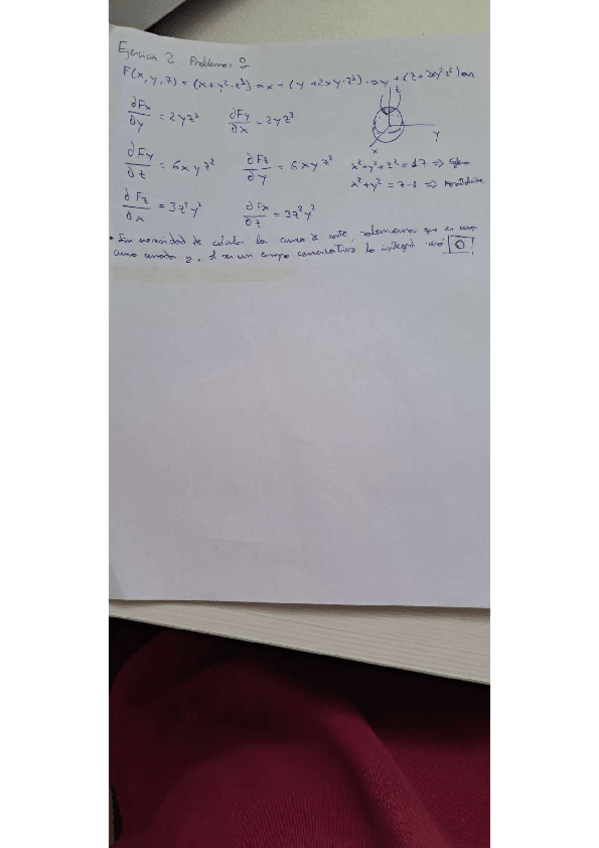 Ejercicio 2. Problemas 2
F(x, y, z) = (x + y²·z³)·ax + (y + 2xy·z³)·ay + (z + 3xy²z²)
z
∂Fx/∂y = 2yz³ ∂Fy/∂x = 2yz³
y
x
∂Fy/∂z = 6xyz² ∂Fz/∂y = 6xyz² x² + y² + z² = 17 => Esfera
x² + y² = z-1 => Paraboloide
∂Fz/∂x = 3z²y² ∂Fx/∂z = 3z²y²
• Sin necesidad de calcular la curva de corte, sabemos que es una
curva cerrada y, si es un campo conservativo la integral será 0